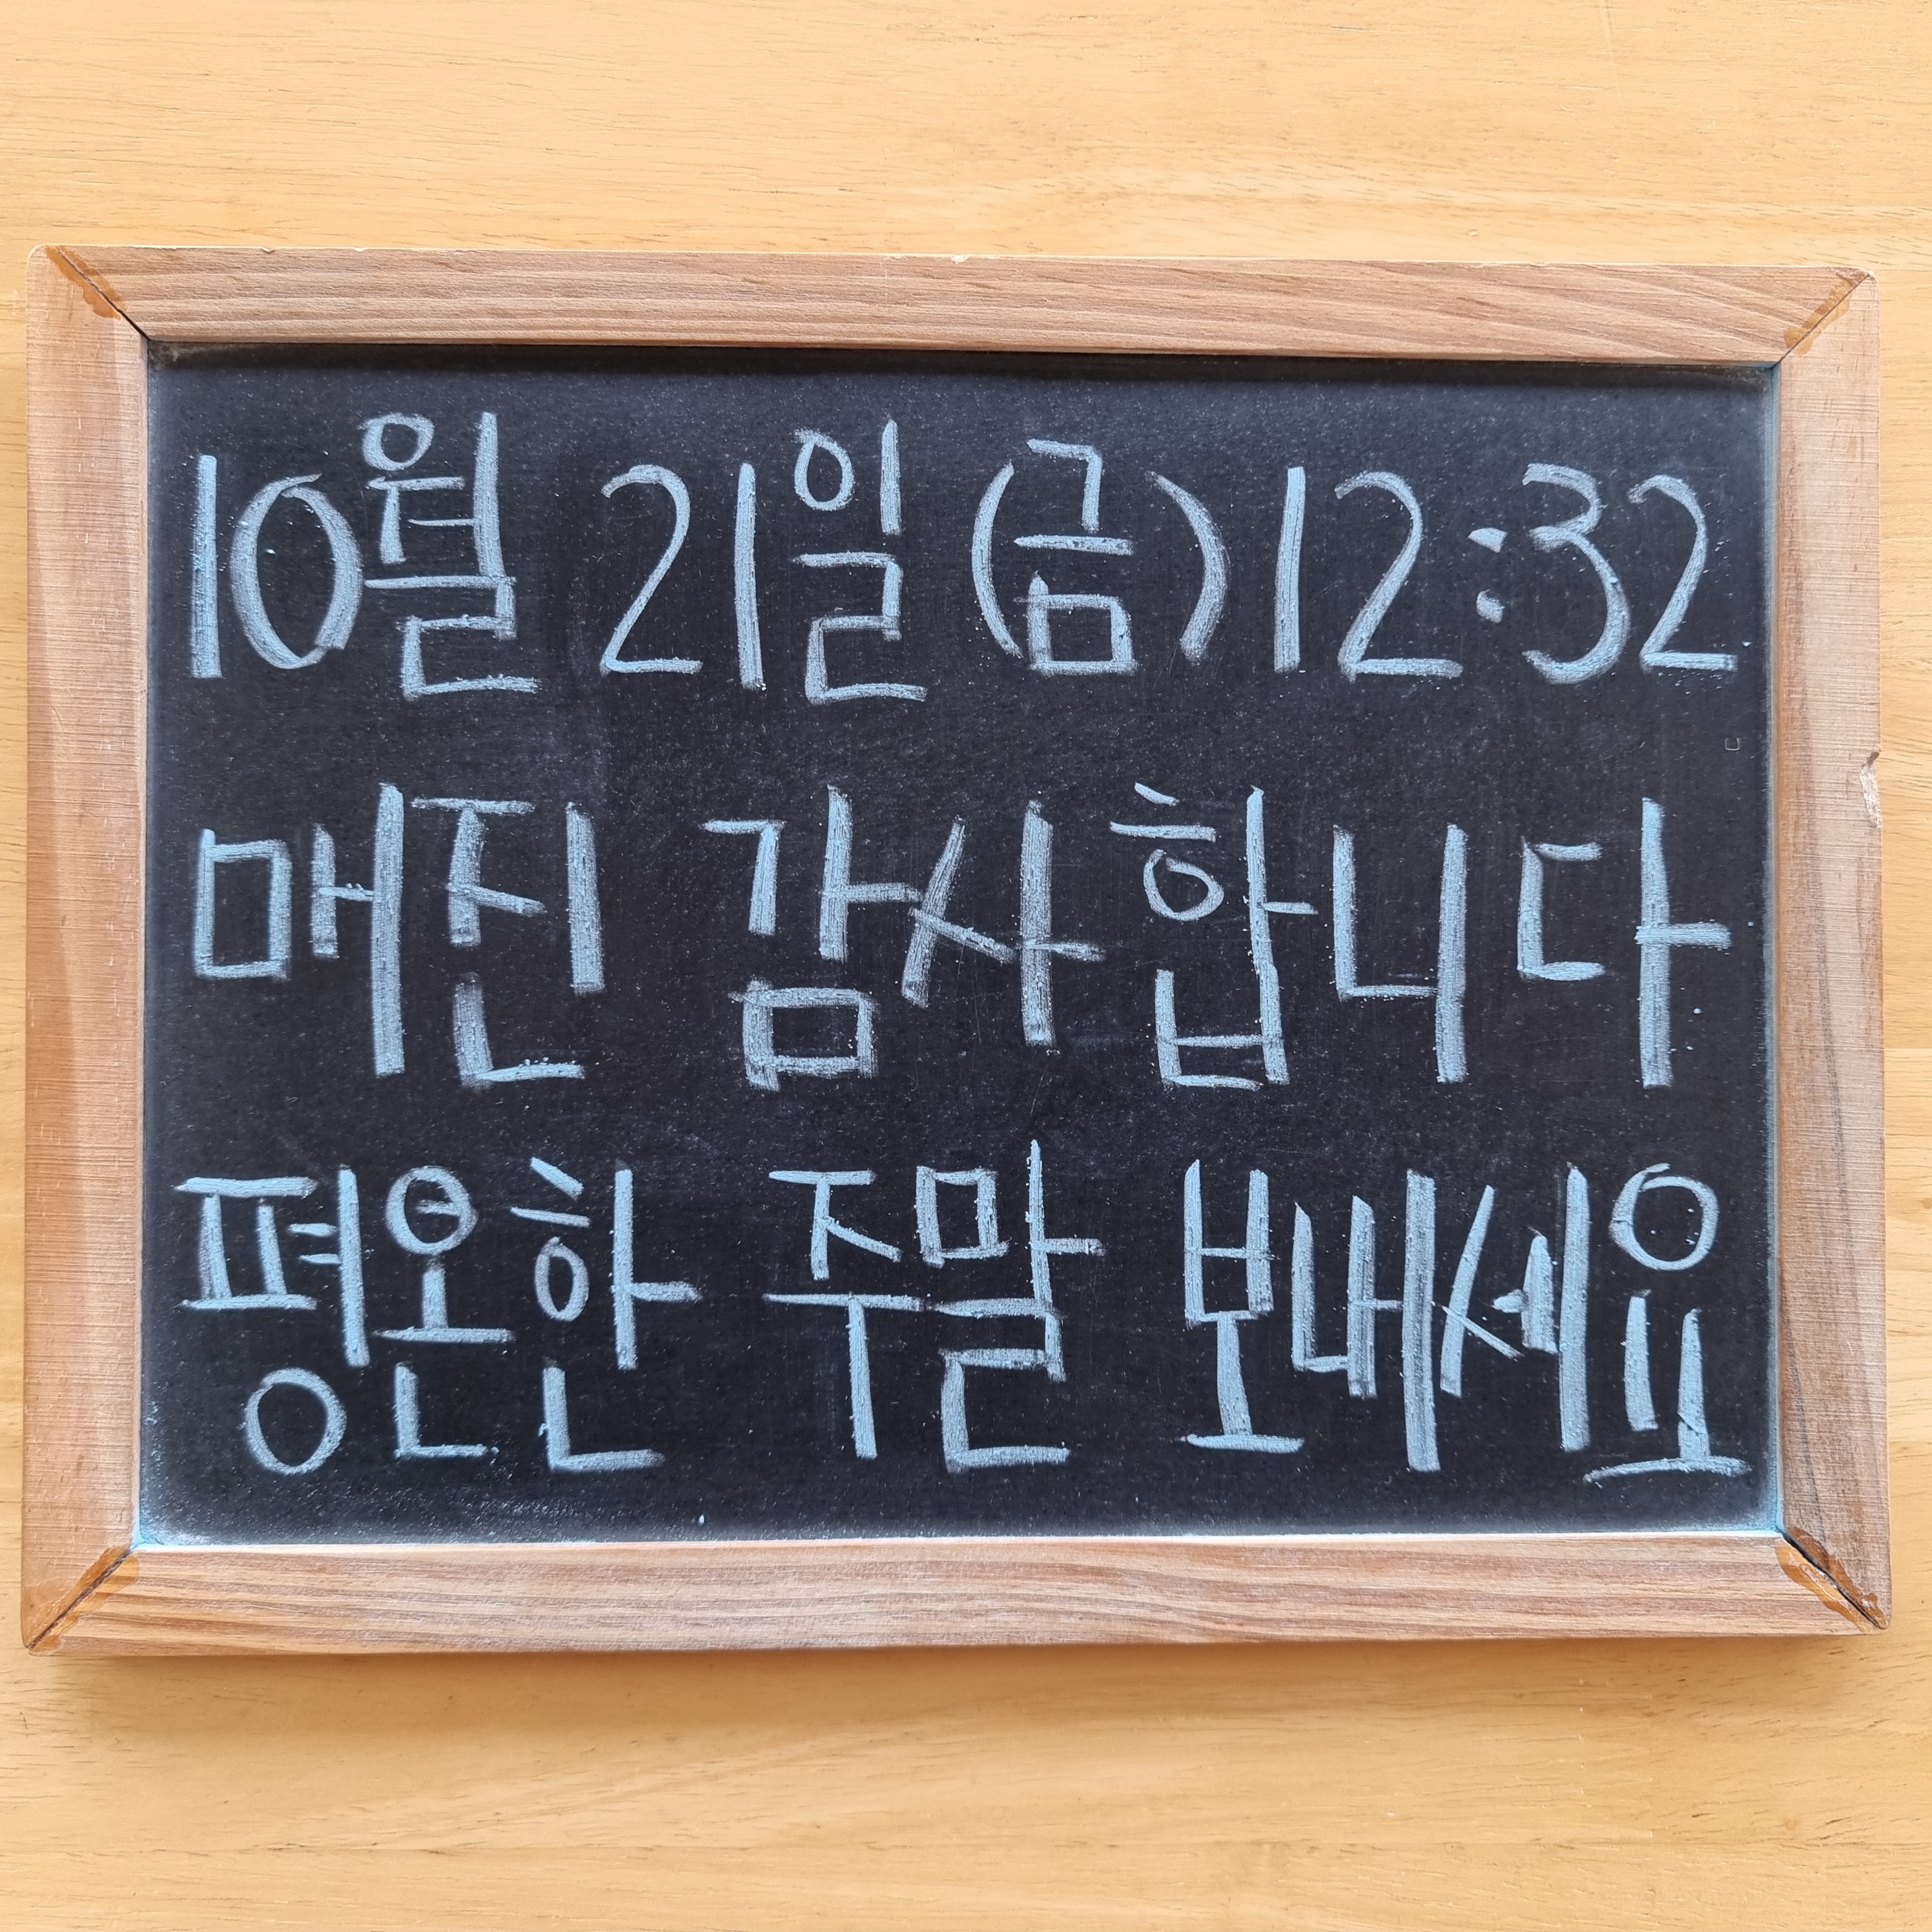 10월 21일 (금) 12:32
매진 감사합니다
평온한 주말 보내세요